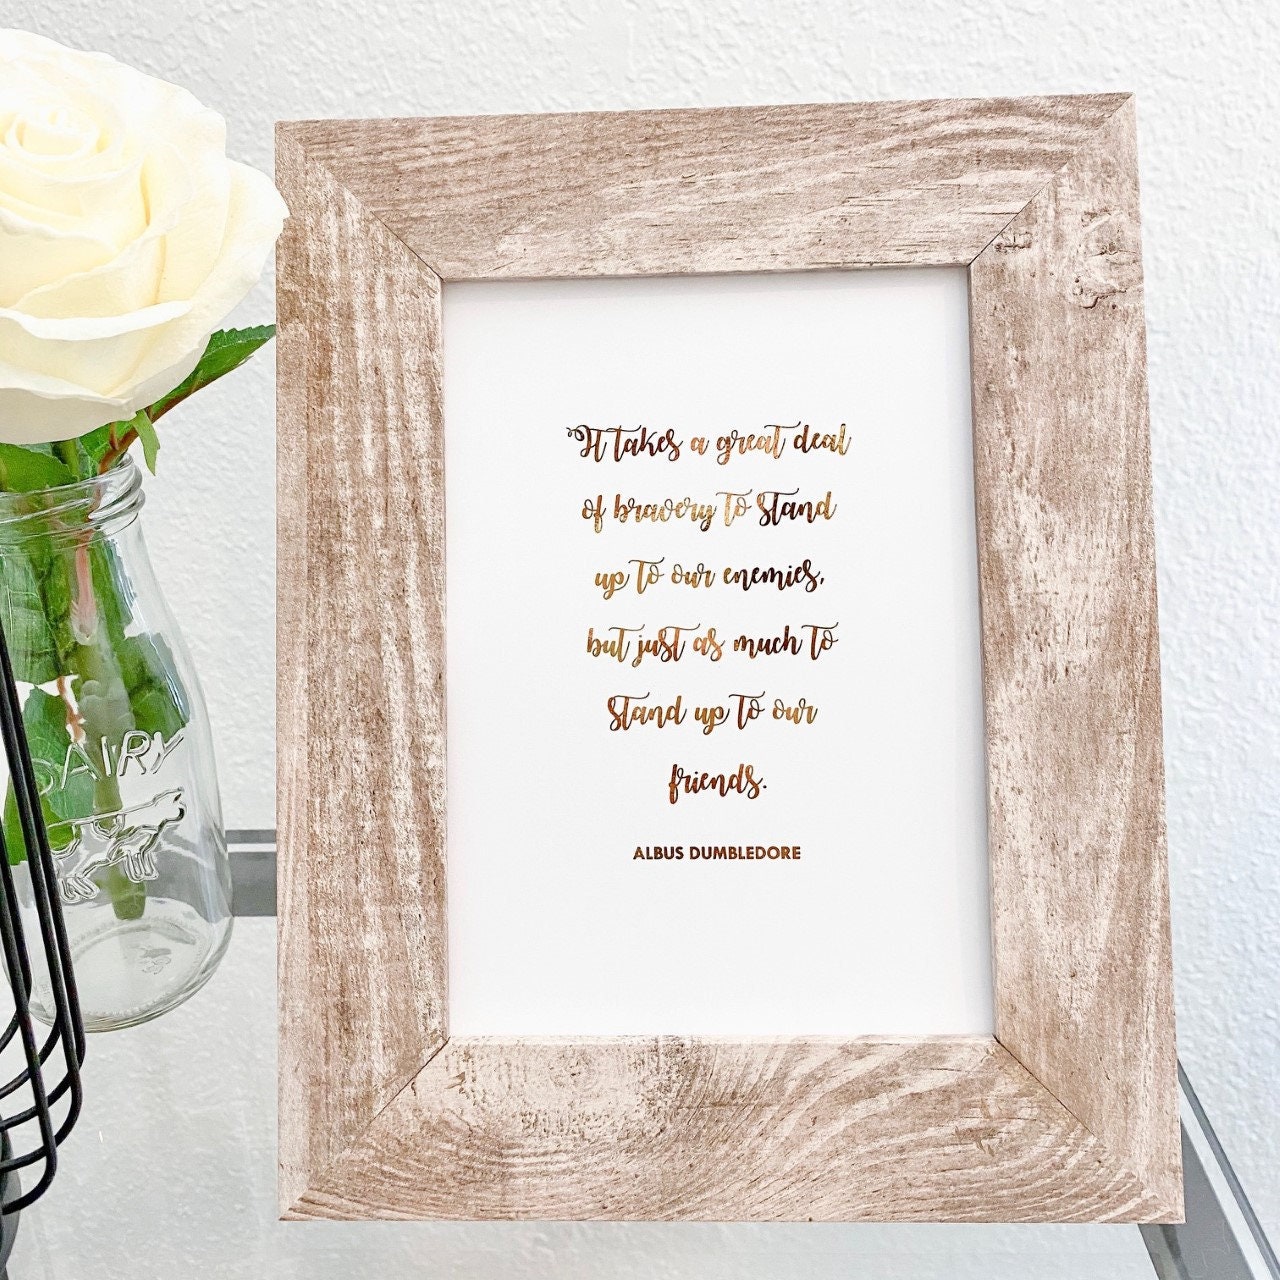 "It takes a great deal
of bravery to stand
up to our enemies,
but just as much to
stand up to our
friends.
ALBUS DUMBLEDORE
DAIRY